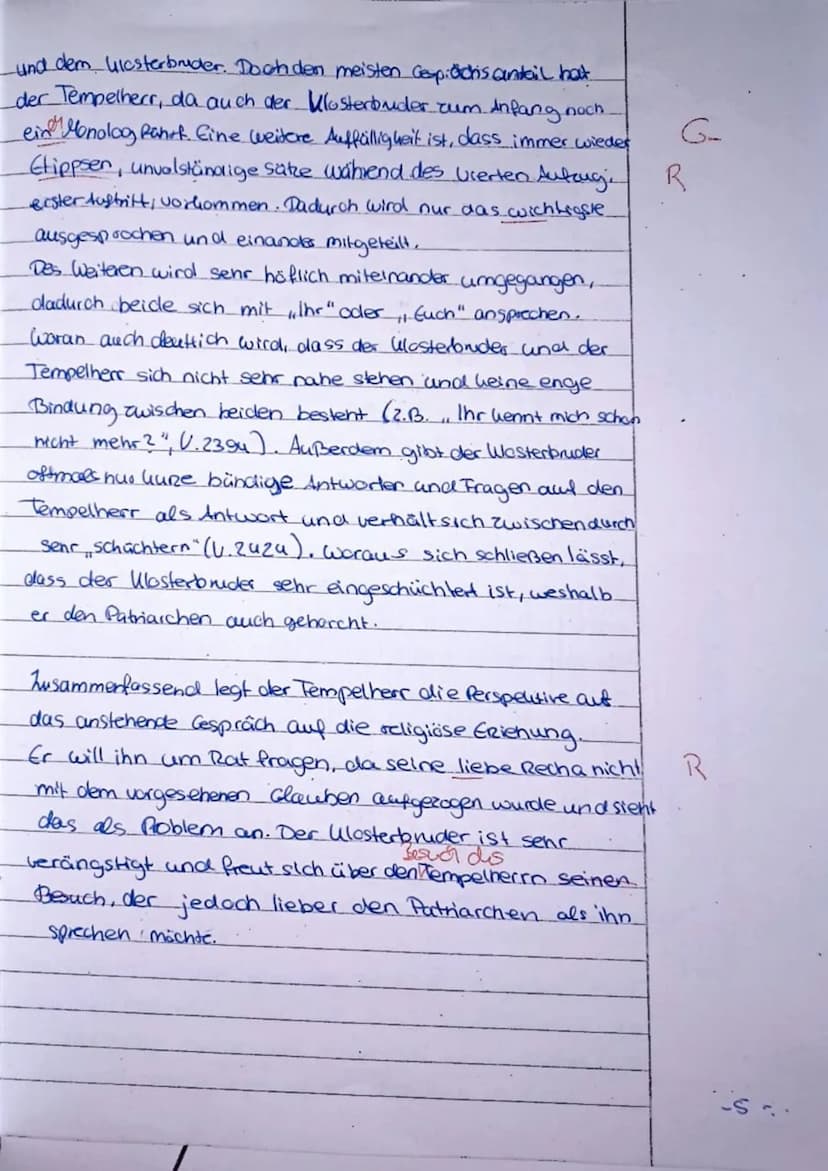 und dem Klosterbruder. Doch den meisten Gesprächsanteil hat
der Tempelherr, da auch der Klosterbruder zum Anfang noch
einen Monolog führt. Eine weitere Auffälligkeit ist, dass immer wieder
G
Elippsen, unvolständige sätze während des vierten Aufzug,
R
erster Auftritt, vorkommen. Dadurch wird nur das wichtigste
ausgesprochen und einander mitgeteilt.
Des Weiteren wird sehr höflich miteinander umgegangen,
dadurch beide sich mit „Ihr" oder „Euch" ansprechen.
Woran auch deutlich wird, dass der Klosterbruder und der
Tempelherr sich nicht sehr nahe stehen und keine enge
Bindung zwischen beiden besteht (z.B. „Ihr kennt mich schon
nicht mehr?", V. 2394). Außerdem gibt der Klosterbruder
oftmals nur kurze bündige Antworten und Fragen auf den
Tempelherr als Antwort und verhält sich zwischendurch
sehr „schüchtern" (V. 2424). Woraus sich schließen lässt,
dass der Klosterbruder sehr eingeschüchtert ist, weshalb
er den Patriarchen auch gehorcht.
Zusammenfassend legt der Tempelherr die Perspektive auf
das anstehende Gespräch auf die religiöse Erziehung.
Er will ihn um Rat fragen, da seine liebe Recha nicht
R
mit dem vorgesehenen Glauben aufgezogen wurde und sieht
das als Problem an. Der Klosterbruder ist sehr
Besuch des
verängstigt und freut sich über den Tempelherrn seinen
Besuch, der jedoch lieber den Patriarchen als ihn
sprechen möchte.
-5-